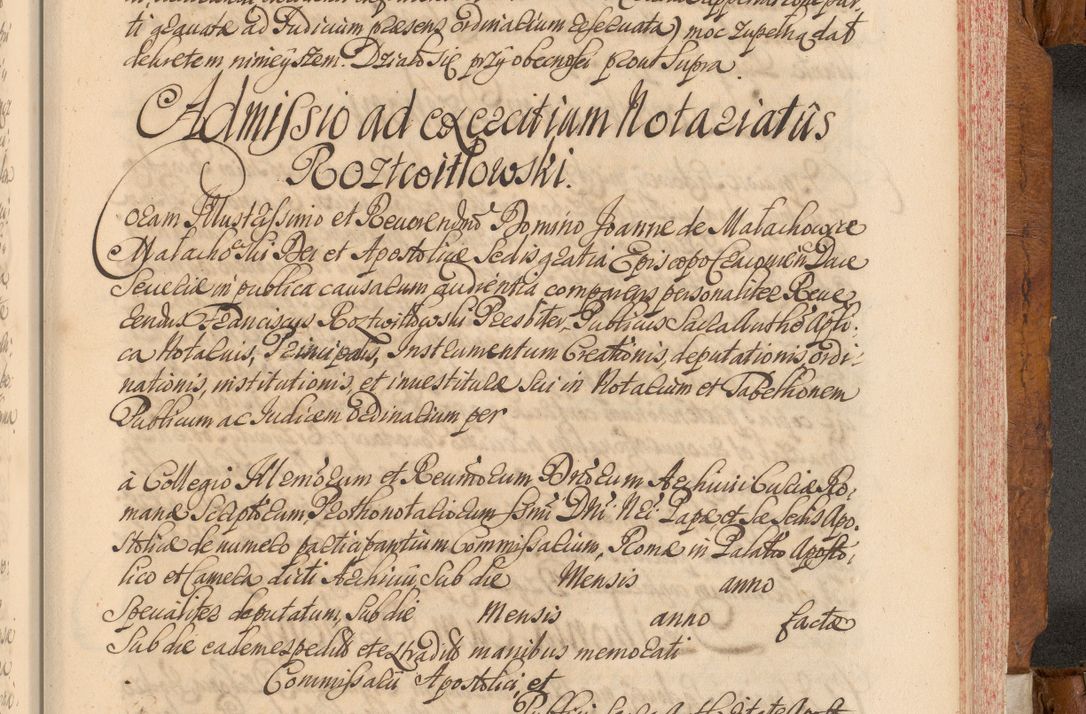 ti quate ad Judicium præsens ordinarium exsecuata) moc zupełną dat
dekretem nimeyszem. Działo się przy obecnosci prout supra.
Admissio ad exercitium Notariatûs
Roztwitłowski.
Coram Illustrissimo et Reverendmô Domino Joanne de Małachowice
Małachowski Dei et Apostolicæ Sedis gratia Episcopo Cracovien Duce
Severiæ in publica causarum audientia comparens personaliter Reve
rendus Franciscus Roztwitłowski Presbiter, Publicus Sacra Autho Apli:
ca Notarius, Principalis, Instrumentum Creationis, deputationis, ordi:
nationis, institutionis, et investituræ sui in Notarium et Tabellionem
Publicum ac Judicem ordinarium per
à Collegio Illrmôrum et Reumôrum Dnôrum Archivi Curiæ Ro:
manæ Scriptorum, Prothonotariorum Ssmi Dni Nri Papæ et Sæ Sedis Apo:
stoliæ de numero participantium Commissarium, Romæ in Palatio Aposto:
lico et Camera dicti Archivii, Sub die Mensis anno
Specialiter deputatum, Sub die Mensis anno facta
Sub die eadem expeditô et extraditô manibus memorati
Commissarii Apostolici, et